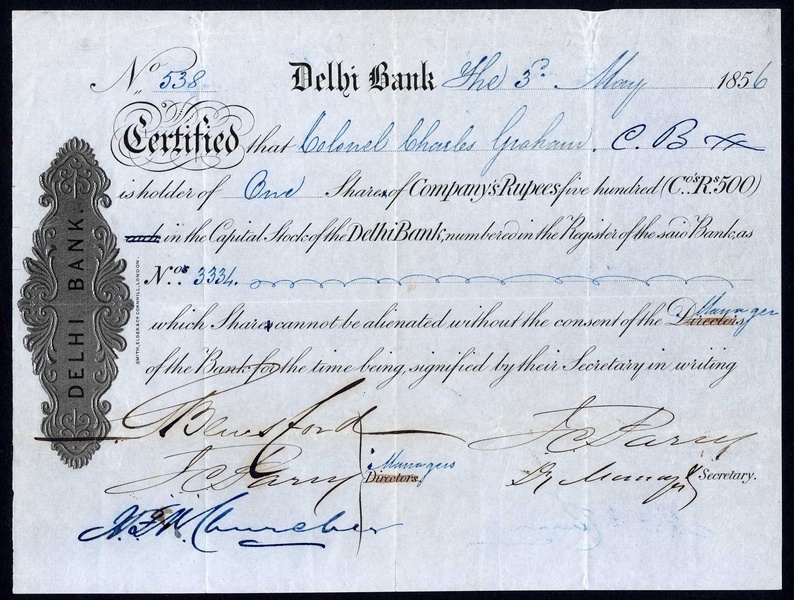 No 538 Delhi Bank The 3d. May 1856
Certified that Colonel Charles Graham. C. B
is holder of One Share, of Company's Rupees five hundred (Co's Rs 500)
each, in the Capital Stock of the Delhi Bank, numbered in the Register of the said Bank, as
Nos. 3334.
which Share cannot be alienated without the consent of the Directors Managers
of the Bank for the time being, signified by their Secretary in writing
Beresford
J C Parry
J C Parry Managers
Directors.
Dy Manager Secretary.
Churcher
DELHI BANK.
SMITH, ELDER & Co CORNHILL, LONDON.